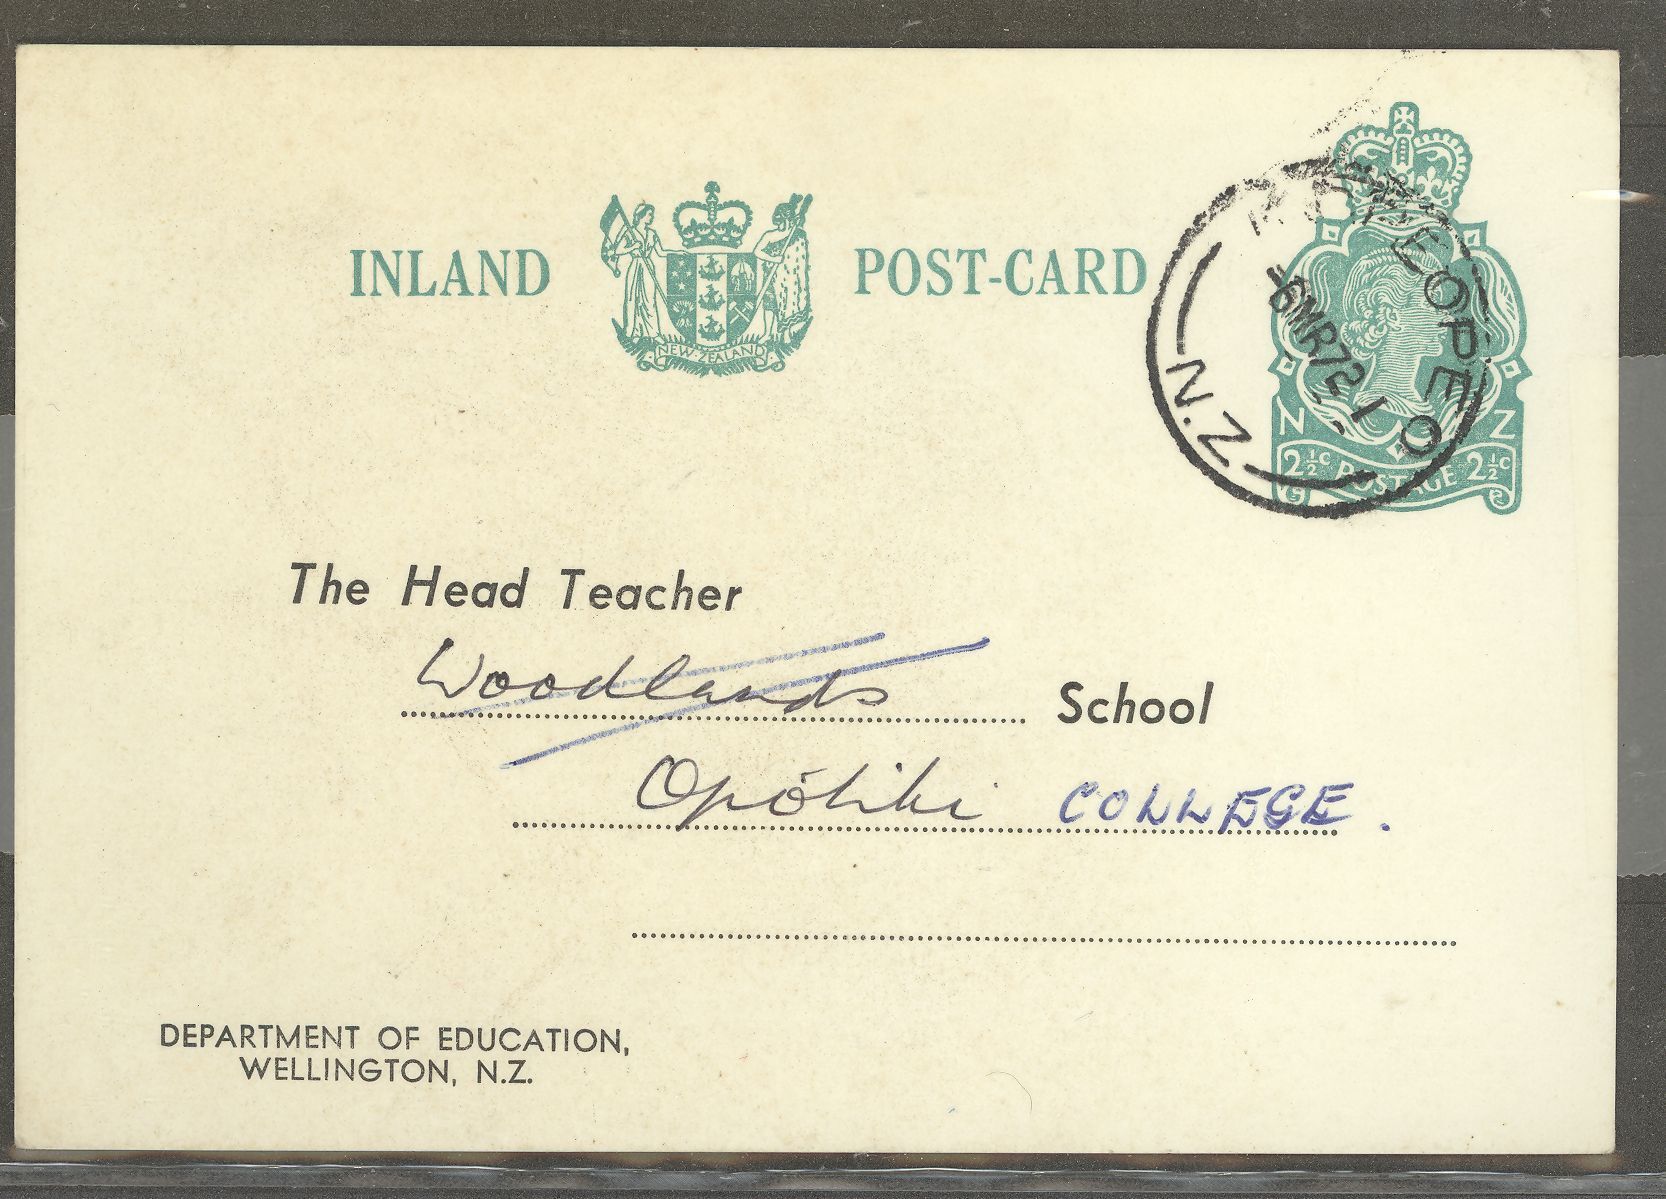 INLAND POST-CARD
NEW·ZEALAND
N.Z.
-6MR72 1
N Z
2½c POSTAGE 2½c
The Head Teacher
Woodlands School
Opótiki COLLEGE.
DEPARTMENT OF EDUCATION,
WELLINGTON, N.Z.